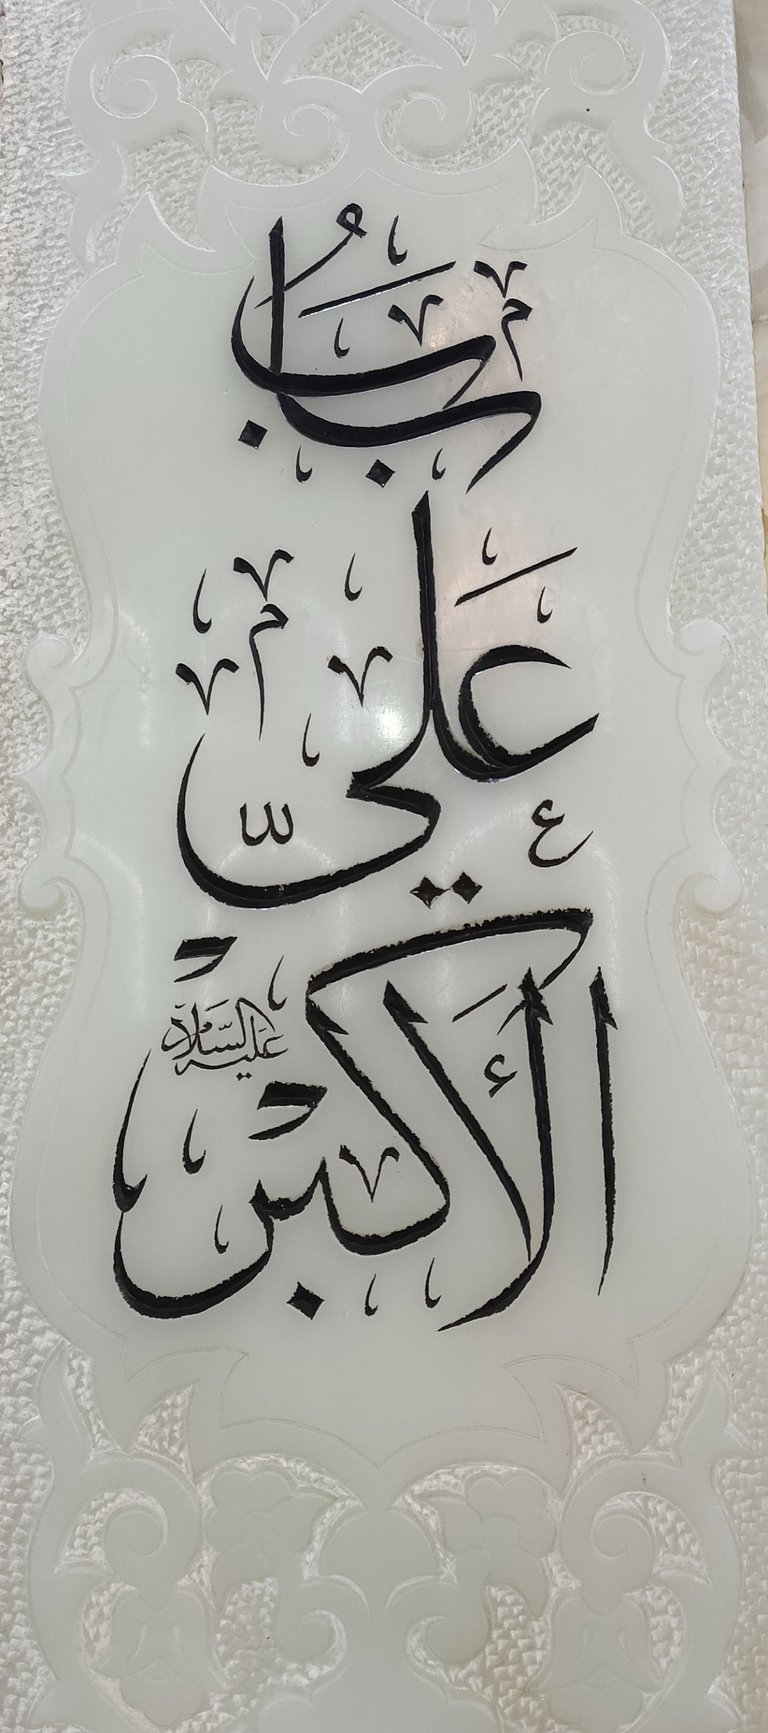 بَابُ
عَلِيّ
الأَكبَر
عَلَيهِ السَّلَام